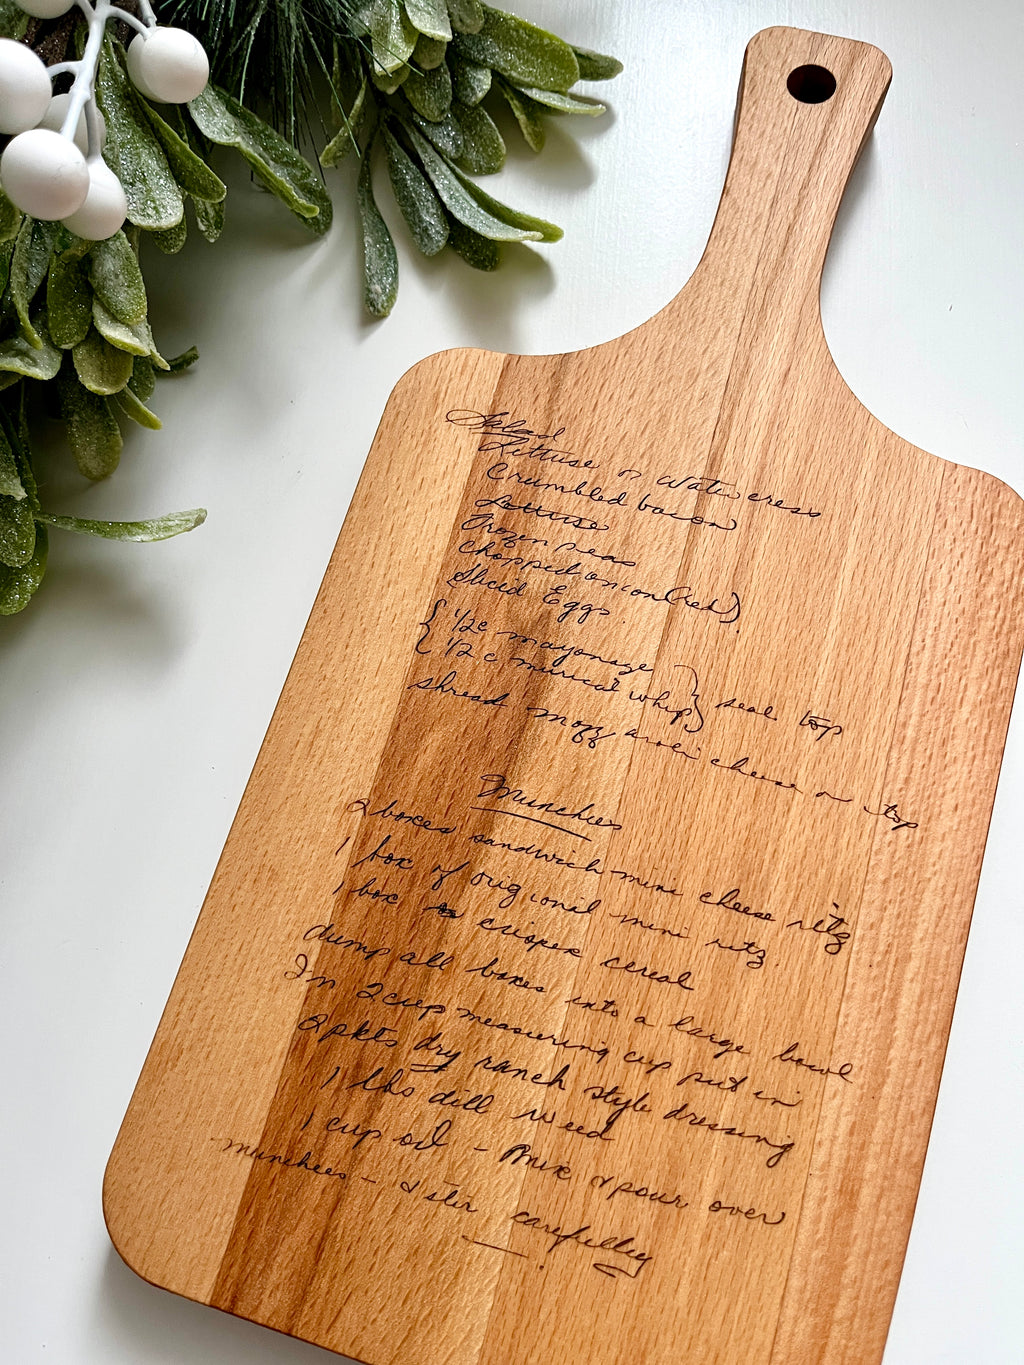 Salad
Lettuse or Watercress
Crumbled bacon
Lettuse
Frozen peas
Chopped onion (red)
Sliced Eggs.
{ 1/2 c mayonaze }
{ 1/2 c murical whip } seal top
shread mozzaroli cheese on top
Munchies
2 boxes sandwich mini cheese ritz
1 box of origional mini ritz.
1 box crispex cereal
dump all boxes into a large bowl
In 2 cup measuring cup put in
2 pkts dry ranch style dressing
1 tbs dill weed
1 cup oil - Mix & pour over
munchees - & stir carefulley